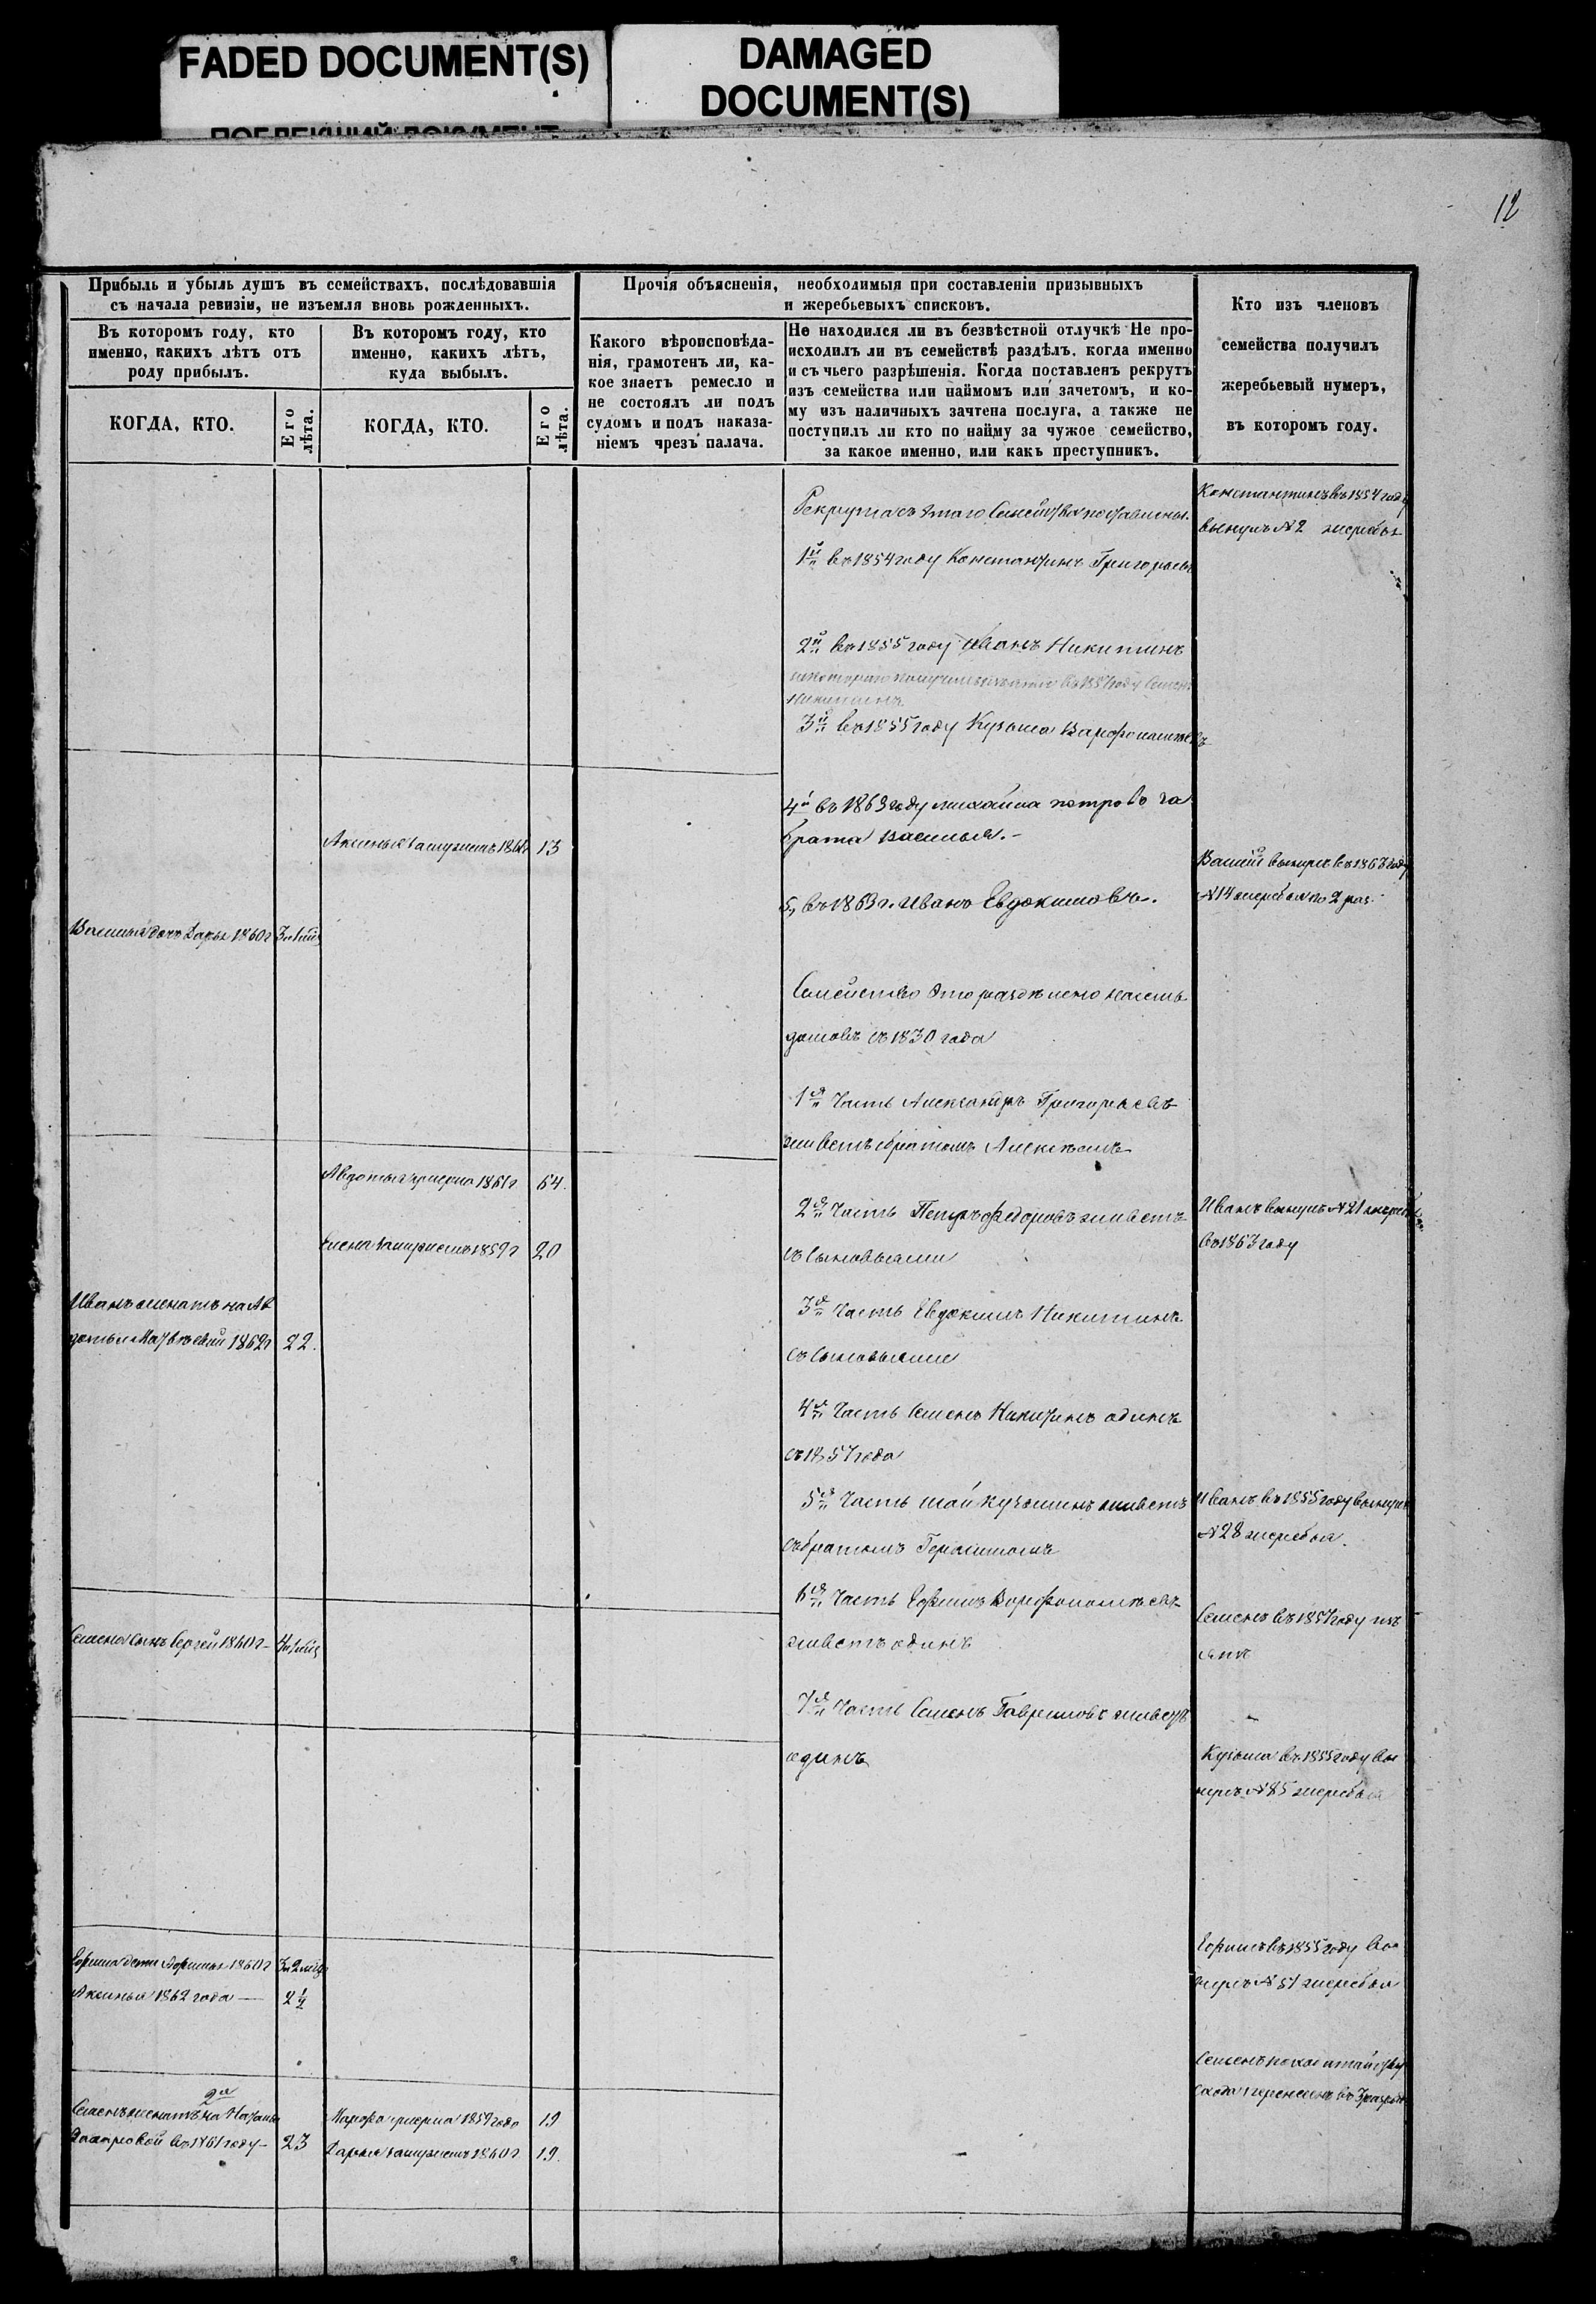 FADED DOCUMENT(S)
DAMAGED
DOCUMENT(S)
12
Прибыль и убыль душъ въ семействахъ, послѣдовавшія
съ начала ревизіи, не изъемля вновь рожденныхъ.
Въ которомъ году, кто
именно, какихъ лѣтъ отъ
роду прибылъ.
Въ которомъ году, кто
именно, какихъ лѣтъ,
куда выбылъ.
КОГДА, КТО.
Его
лѣта.
КОГДА, КТО.
Его
лѣта.
Прочія объясненія, необходимыя при составленіи призывныхъ
и жеребьевыхъ списковъ.
Какого вѣроисповѣда-
нія, грамотенъ ли, ка-
кое знаетъ ремесло и
не состоялъ ли подъ
судомъ и подъ наказа-
ніемъ чрезъ палача.
Не находился ли въ безвѣстной отлучкѣ Не про-
исходилъ ли въ семействѣ раздѣлъ, когда именно
и съ чьего разрѣшенія. Когда поставленъ рекрутъ
изъ семейства или наймомъ или зачетомъ, и ко-
му изъ наличныхъ зачтена послуга, а также не
поступилъ ли кто по найму за чужое семейство,
за какое именно, или какъ преступникъ.
Кто изъ членовъ
семейства получилъ
жеребьевый нумеръ,
въ которомъ году.
Аксинья замужемъ 186 13
Васильа дочь Дарья 1860г
Авдотья умерла 1861г. 64.
Елена замужемъ 1859г 20
Иванъ женатъ на Ав
дотьи Матвѣевой 1862г 22.
Семена сынъ Сергей 1860г
Ефима дети Афимья 1860г
Аксинья 1862 года — 2½
Семенъ женатъ на
въ 1861 году — 23
Марфа умерла 1859 года 19
Дарья замужемъ 1860г 19.
Рекрута съ этаго Семейства поставлены.
1й въ 1854 году Константинъ Григорьевъ
2й въ 1855 году Иванъ Никитинъ
въ 1857 году Семенъ
Никитинъ
3й въ 1855 году Кузьма Варфоломеевъ
4й въ 1863 году михайла петрова за
брата Василья.-
5, въ 1863 г. Иванъ Евдокимовъ.
Семейство это разделено на семь
домовъ съ 1830 года
1я Часть Александръ Григорьевъ
живетъ братомъ Алексѣемъ
2я Часть Петръ Федоровъ живетъ
съ Сыновьями
3я Часть Евдокимъ Никитинъ
съ Сыновьями
4я Часть Семенъ Никитинъ одинъ
съ 1857 года
5я Часть Кузьминъ живетъ
съ братомъ Герасимомъ
6я Часть Ефимъ Ворфоломеевъ
живетъ одинъ
7я Часть Семенъ Гавриловъ живетъ
одинъ
Константинъ въ 1854 году
вынулъ №2 жеребья
Василій вынулъ въ 1863 году
№14 жеребья по 2 раз.
Иванъ вынулъ №21 жеребья
въ 1863 году
Иванъ въ 1855 году вынулъ
№28 жеребья.
Семенъ въ 1857 году
Кузьма въ 1855 году вы
нулъ №85 жеребья
Ефимъ въ 1855 году вы
нулъ №51 жеребья